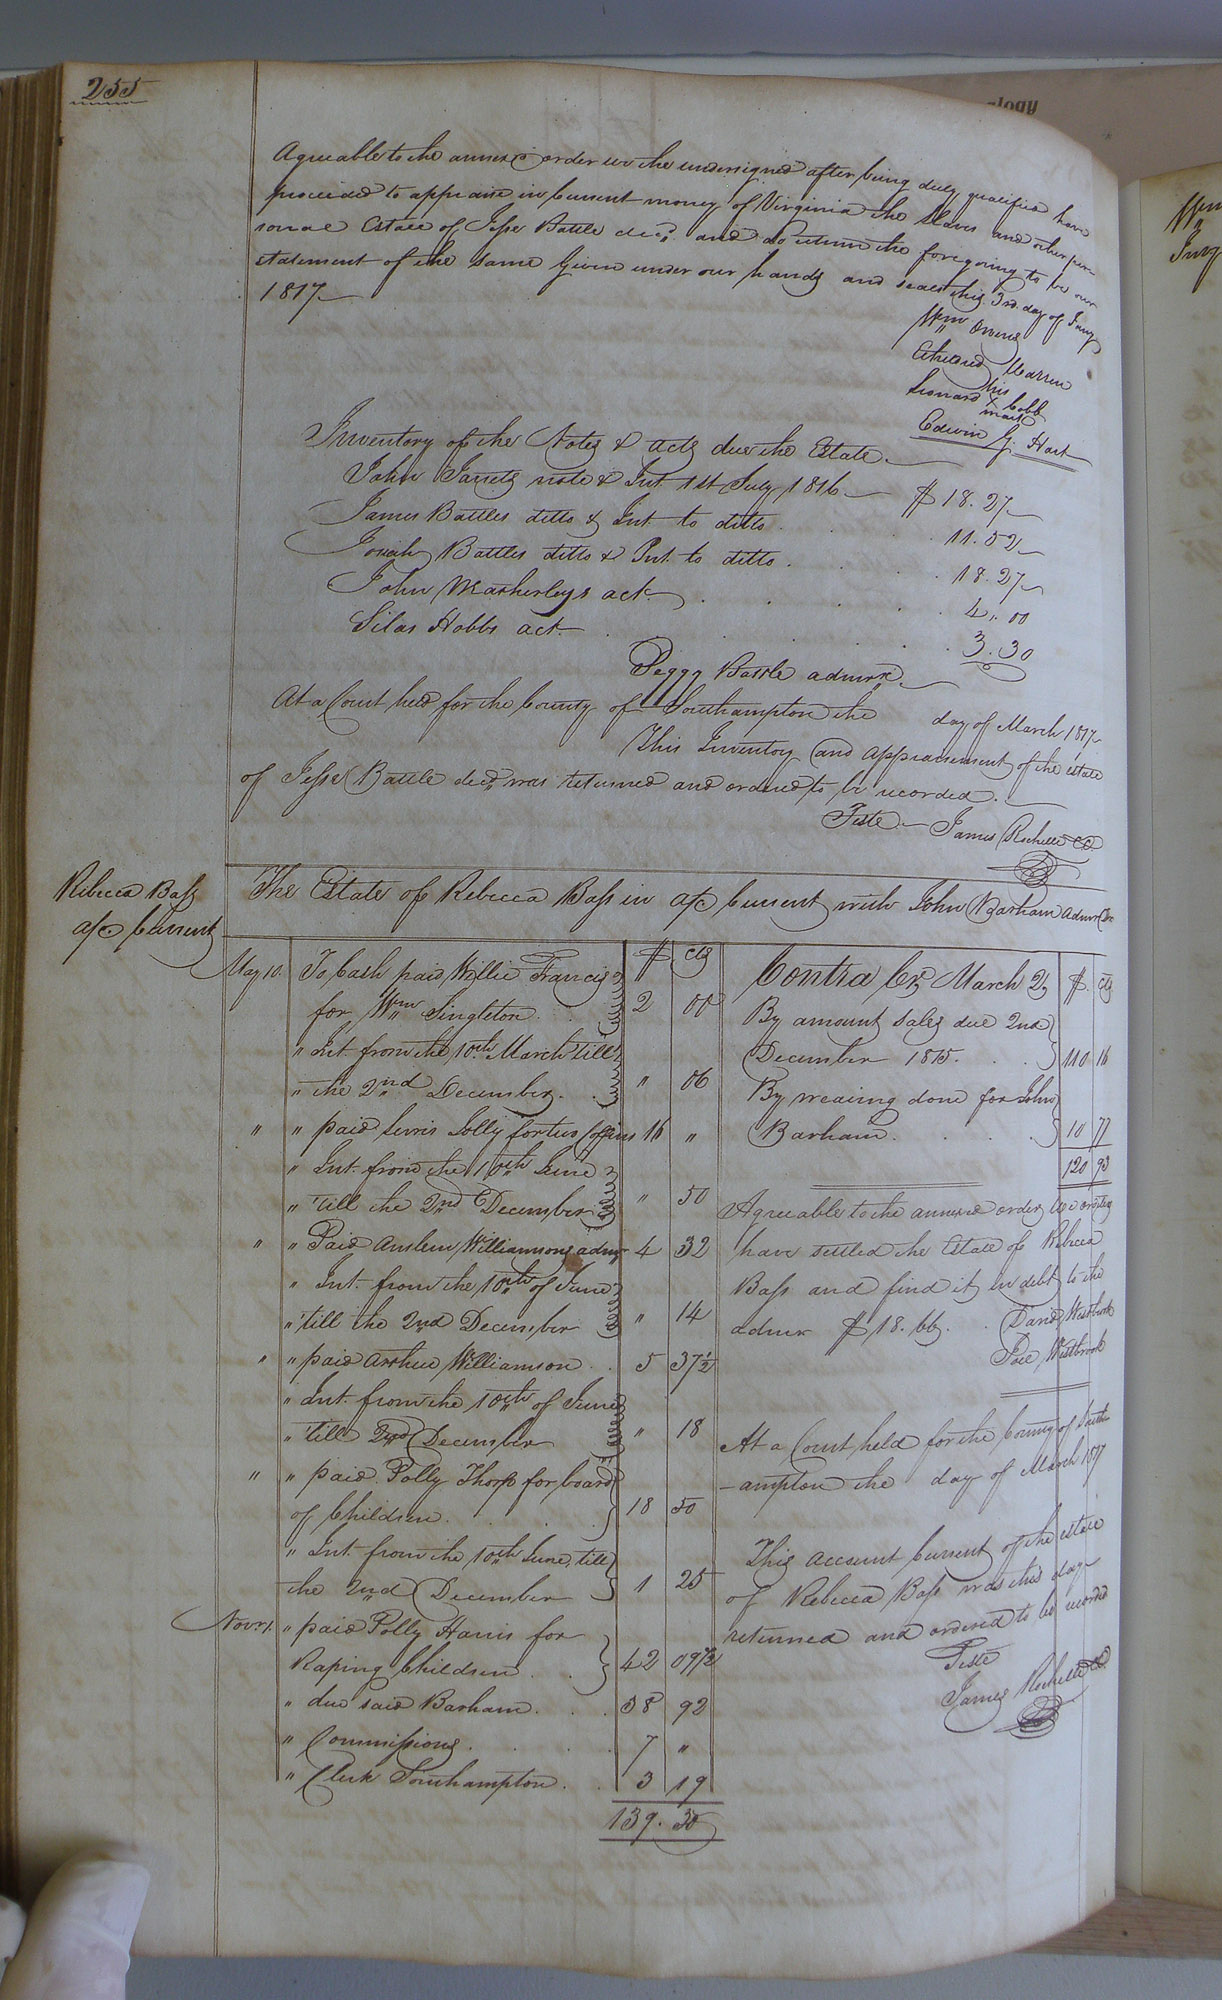 255
Agreeable to the annexed order we the undersigned after being duly qualified have
proceeded to appraise in Current money of Virginia the Slaves and other per-
sonal Estate of Jesse Battle decd. and do return the foregoing to be our
statement of the same Given under our hands and seals this 3rd. day of Jany
1817
Wm Owens
Etheldred Warren
his
Leonard x Cobb
mark
Edwin G. Hart
Inventory of the Notes & accts due the Estate
John note & Int. 1st July 1816 $ 18.27
James Battles ditto & Int. to ditto 11.52
Josiah Battles ditto & Int. to ditto 18.27
John act. 4.00
Silas Hobbs act. 3.30
Peggy Battle admrx
At a Court held for the County of Southampton the day of March 1817
This Inventory and appraisement of the estate
of Jesse Battle decd. was returned and ordered to be recorded.
Teste James Rochelle CC.
Rebecca Bass
a/c Current
The Estate of Rebecca Bass in a/c Current with John Barham Admr Dr
$ cts
May 10. To Cash paid Willie Francis
for Wm Singleton 2 00
" Int. from the 10th March till
" the 2nd December " 06
" " paid Lewis Jolly for two Coffins 16 "
" Int. from the 10th June
" till the 2nd December " 50
" " Paid Anslem Williamsons admr 4 32
" Int. from the 10th of June
" till the 2nd December " 14
" " paid Arthur Williamson 5 37½
" Int. from the 10th of June
" till 2nd December " 18
" " paid Polly Thorp for board
of Children 18 50
" Int. from the 10th June till
the 2nd December 1 25
Novr 1. " paid Polly Harris for
Raping Children 42 09½
" due said Barham 38 92
" Commissions 7 "
" Clerk Southampton 3 19
139.30
Contra Cr. March 2 $ cts
By amount Sales due 2nd
December 1815. 110 16
By weaving done for John
Barham 10 77
120 93
Agreeable to the annexed order
have settled the Estate of Rebecca
Bass and find it in debt to the
admr $18.66. David Westbrook
Westbrook
At a Court held for the County of South-
-ampton the day of March 1817
This account Current of the estate
of Rebecca Bass was this day
returned and ordered to be recorded
Teste
James Rochelle CC.